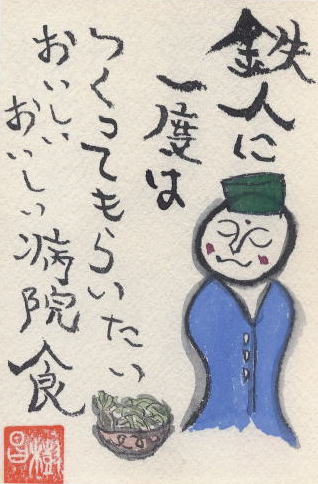 鉄人に
一度は
つくってもらいたい
おいしい
おいしい病院食
昌樹